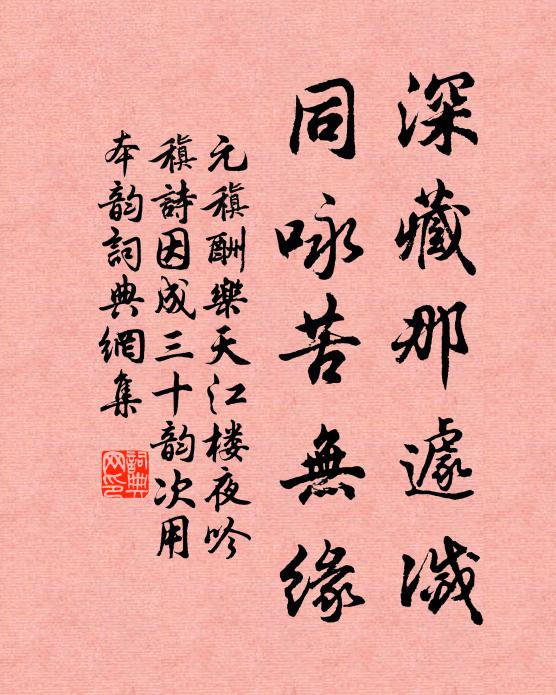 深藏那遽滅
同咏苦無緣
元稹酬樂天江楼夜吟
稹詩因成三十韵次用
本韵詞典網集
詞典网印